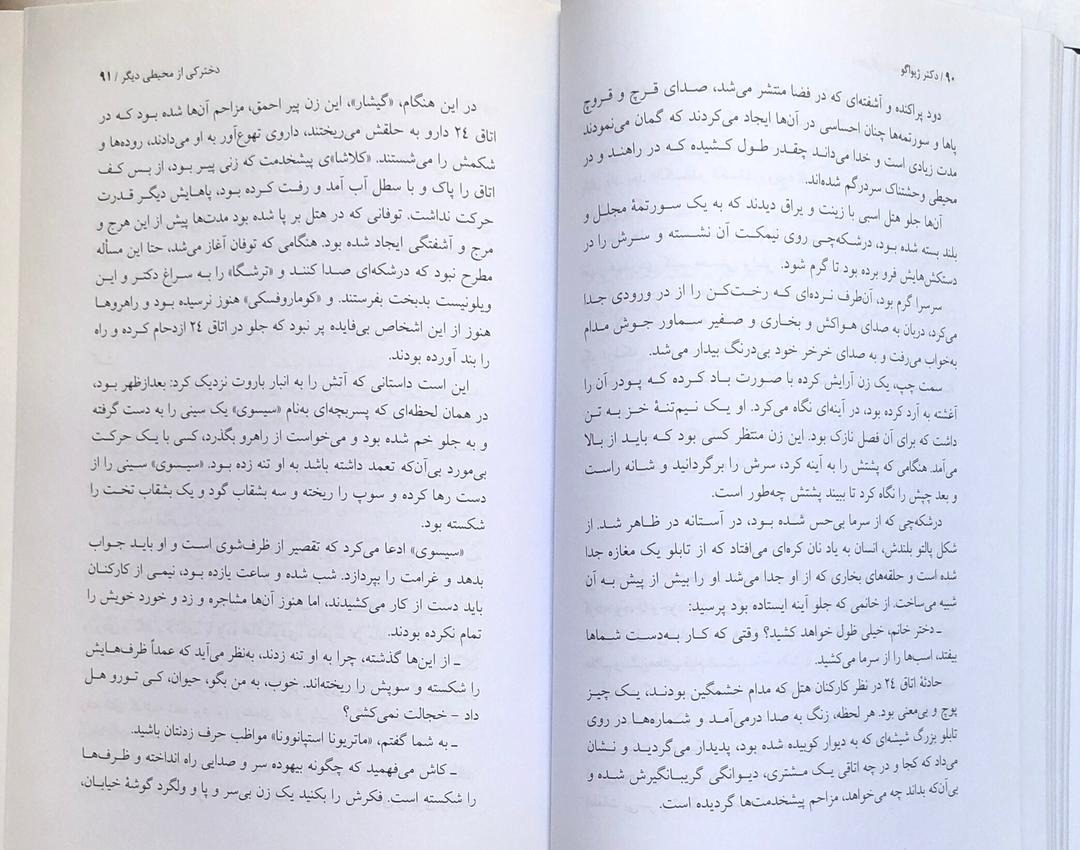 ۹۰/ دکتر ژیواگو
دود پراکنده و آشفته‌ای که در فضا منتشر می‌شد، صدای قرچ و قروچ
پاها و سورتمه‌ها چنان احساسی در آن‌ها ایجاد می‌کردند که گمان می‌نمودند
مدت زیادی است و خدا می‌داند چقدر طول کشیده که در راهند و در
محیطی وحشتناک سردرگم شده‌اند.
آن‌ها جلو هتل اسبی با زینت و یراق دیدند که به یک سورتمهٔ مجلل و
بلند بسته شده بود، درشکه‌چی روی نیمکت آن نشسته و سرش را در
دستکش‌هایش فرو برده بود تا گرم شود.
سرسرا گرم بود، آن‌طرف نرده‌ای که رخت‌کن را از در ورودی جدا
می‌کرد، دربان به صدای هواکش و بخاری و صفیر سماور جوش مدام
به‌خواب می‌رفت و به صدای خرخر خود بی‌درنگ بیدار می‌شد.
سمت چپ، یک زن آرایش کرده با صورت باد کرده که پودر آن را
آغشته به آرد کرده بود، در آینه‌ای نگاه می‌کرد. او یک نیم‌تنهٔ خز به تن
داشت که برای آن فصل نازک بود. این زن منتظر کسی بود که باید از بالا
می‌آمد. هنگامی که پشتش را به آینه کرد، سرش را برگردانید و شانه راست
و بعد چپش را نگاه کرد تا ببیند پشتش چه‌طور است.
درشکه‌چی که از سرما بی‌حس شده بود، در آستانه در ظاهر شد. از
شکل پالتو بلندش، انسان به یاد نان کره‌ای می‌افتاد که از تابلو یک مغازه جدا
شده است و حلقه‌های بخاری که از او جدا می‌شد او را بیش از پیش به آن
شبیه می‌ساخت. از خانمی که جلو آینه ایستاده بود پرسید:
ـ دختر خانم، خیلی طول خواهد کشید؟ وقتی که کار به‌دست شماها
بیفتد، اسب‌ها را از سرما می‌کشید.
حادثهٔ اتاق ۲۴ در نظر کارکنان هتل که مدام خشمگین بودند، یک چیز
پوچ و بی‌معنی بود. هر لحظه، زنگ به صدا درمی‌آمد و شماره‌ها در روی
تابلو بزرگ شیشه‌ای که به دیوار کوبیده شده بود، پدیدار می‌گردید و نشان
می‌داد که کجا و در چه اتاقی یک مشتری، دیوانگی گریبانگیرش شده و
بی‌آن‌که بداند چه می‌خواهد، مزاحم پیشخدمت‌ها گردیده است.
دخترکی از محیطی دیگر / ۹۱
در این هنگام، «گیشار»، این زن پیر احمق، مزاحم آن‌ها شده بود که در
اتاق ۲۴ دارو به حلقش می‌ریختند، داروی تهوع‌آور به او می‌دادند، روده‌ها و
شکمش را می‌شستند. «کلاشا»ی پیشخدمت که زنی پیر بود، از بس کف
اتاق را پاک و با سطل آب آمد و رفت کرده بود، پاهایش دیگر قدرت
حرکت نداشت. توفانی که در هتل بر پا شده بود مدت‌ها پیش از این هرج و
مرج و آشفتگی ایجاد شده بود. هنگامی که توفان آغاز می‌شد، حتا این مسأله
مطرح نبود که درشکه‌ای صدا کنند و «ترشگا» را به سراغ دکتر و این
ویلونیست بدبخت بفرستند. و «کوماروفسکی» هنوز نرسیده بود و راهروها
هنوز از این اشخاص بی‌فایده پر نبود که جلو در اتاق ۲۴ ازدحام کرده و راه
را بند آورده بودند.
این است داستانی که آتش را به انبار باروت نزدیک کرد: بعدازظهر بود،
در همان لحظه‌ای که پسربچه‌ای به‌نام «سیسوی» یک سینی را به دست گرفته
و به جلو خم شده بود و می‌خواست از راهرو بگذرد، کسی با یک حرکت
بی‌مورد بی‌آن‌که تعمد داشته باشد به او تنه زده بود. «سیسوی» سینی را از
دست رها کرده و سوپ را ریخته و سه بشقاب گود و یک بشقاب تخت را
شکسته بود.
«سیسوی» ادعا می‌کرد که تقصیر از ظرف‌شوی است و او باید جواب
بدهد و غرامت را بپردازد. شب شده و ساعت یازده بود، نیمی از کارکنان
باید دست از کار می‌کشیدند، اما هنوز آن‌ها مشاجره و زد و خورد خویش را
تمام نکرده بودند.
ـ از این‌ها گذشته، چرا به او تنه زدند، به‌نظر می‌آید که عمداً ظرف‌هایش
را شکسته و سوپش را ریخته‌اند. خوب، به من بگو، حیوان، کی تورو هل
داد - خجالت نمی‌کشی؟
ـ به شما گفتم، «ماتریونا استپانوونا» مواظب حرف زدنتان باشید.
ـ کاش می‌فهمید که چگونه بیهوده سر و صدایی راه انداخته و ظرف‌ها
را شکسته است. فکرش را بکنید یک زن بی‌سر و پا و ولگرد گوشهٔ خیابان،